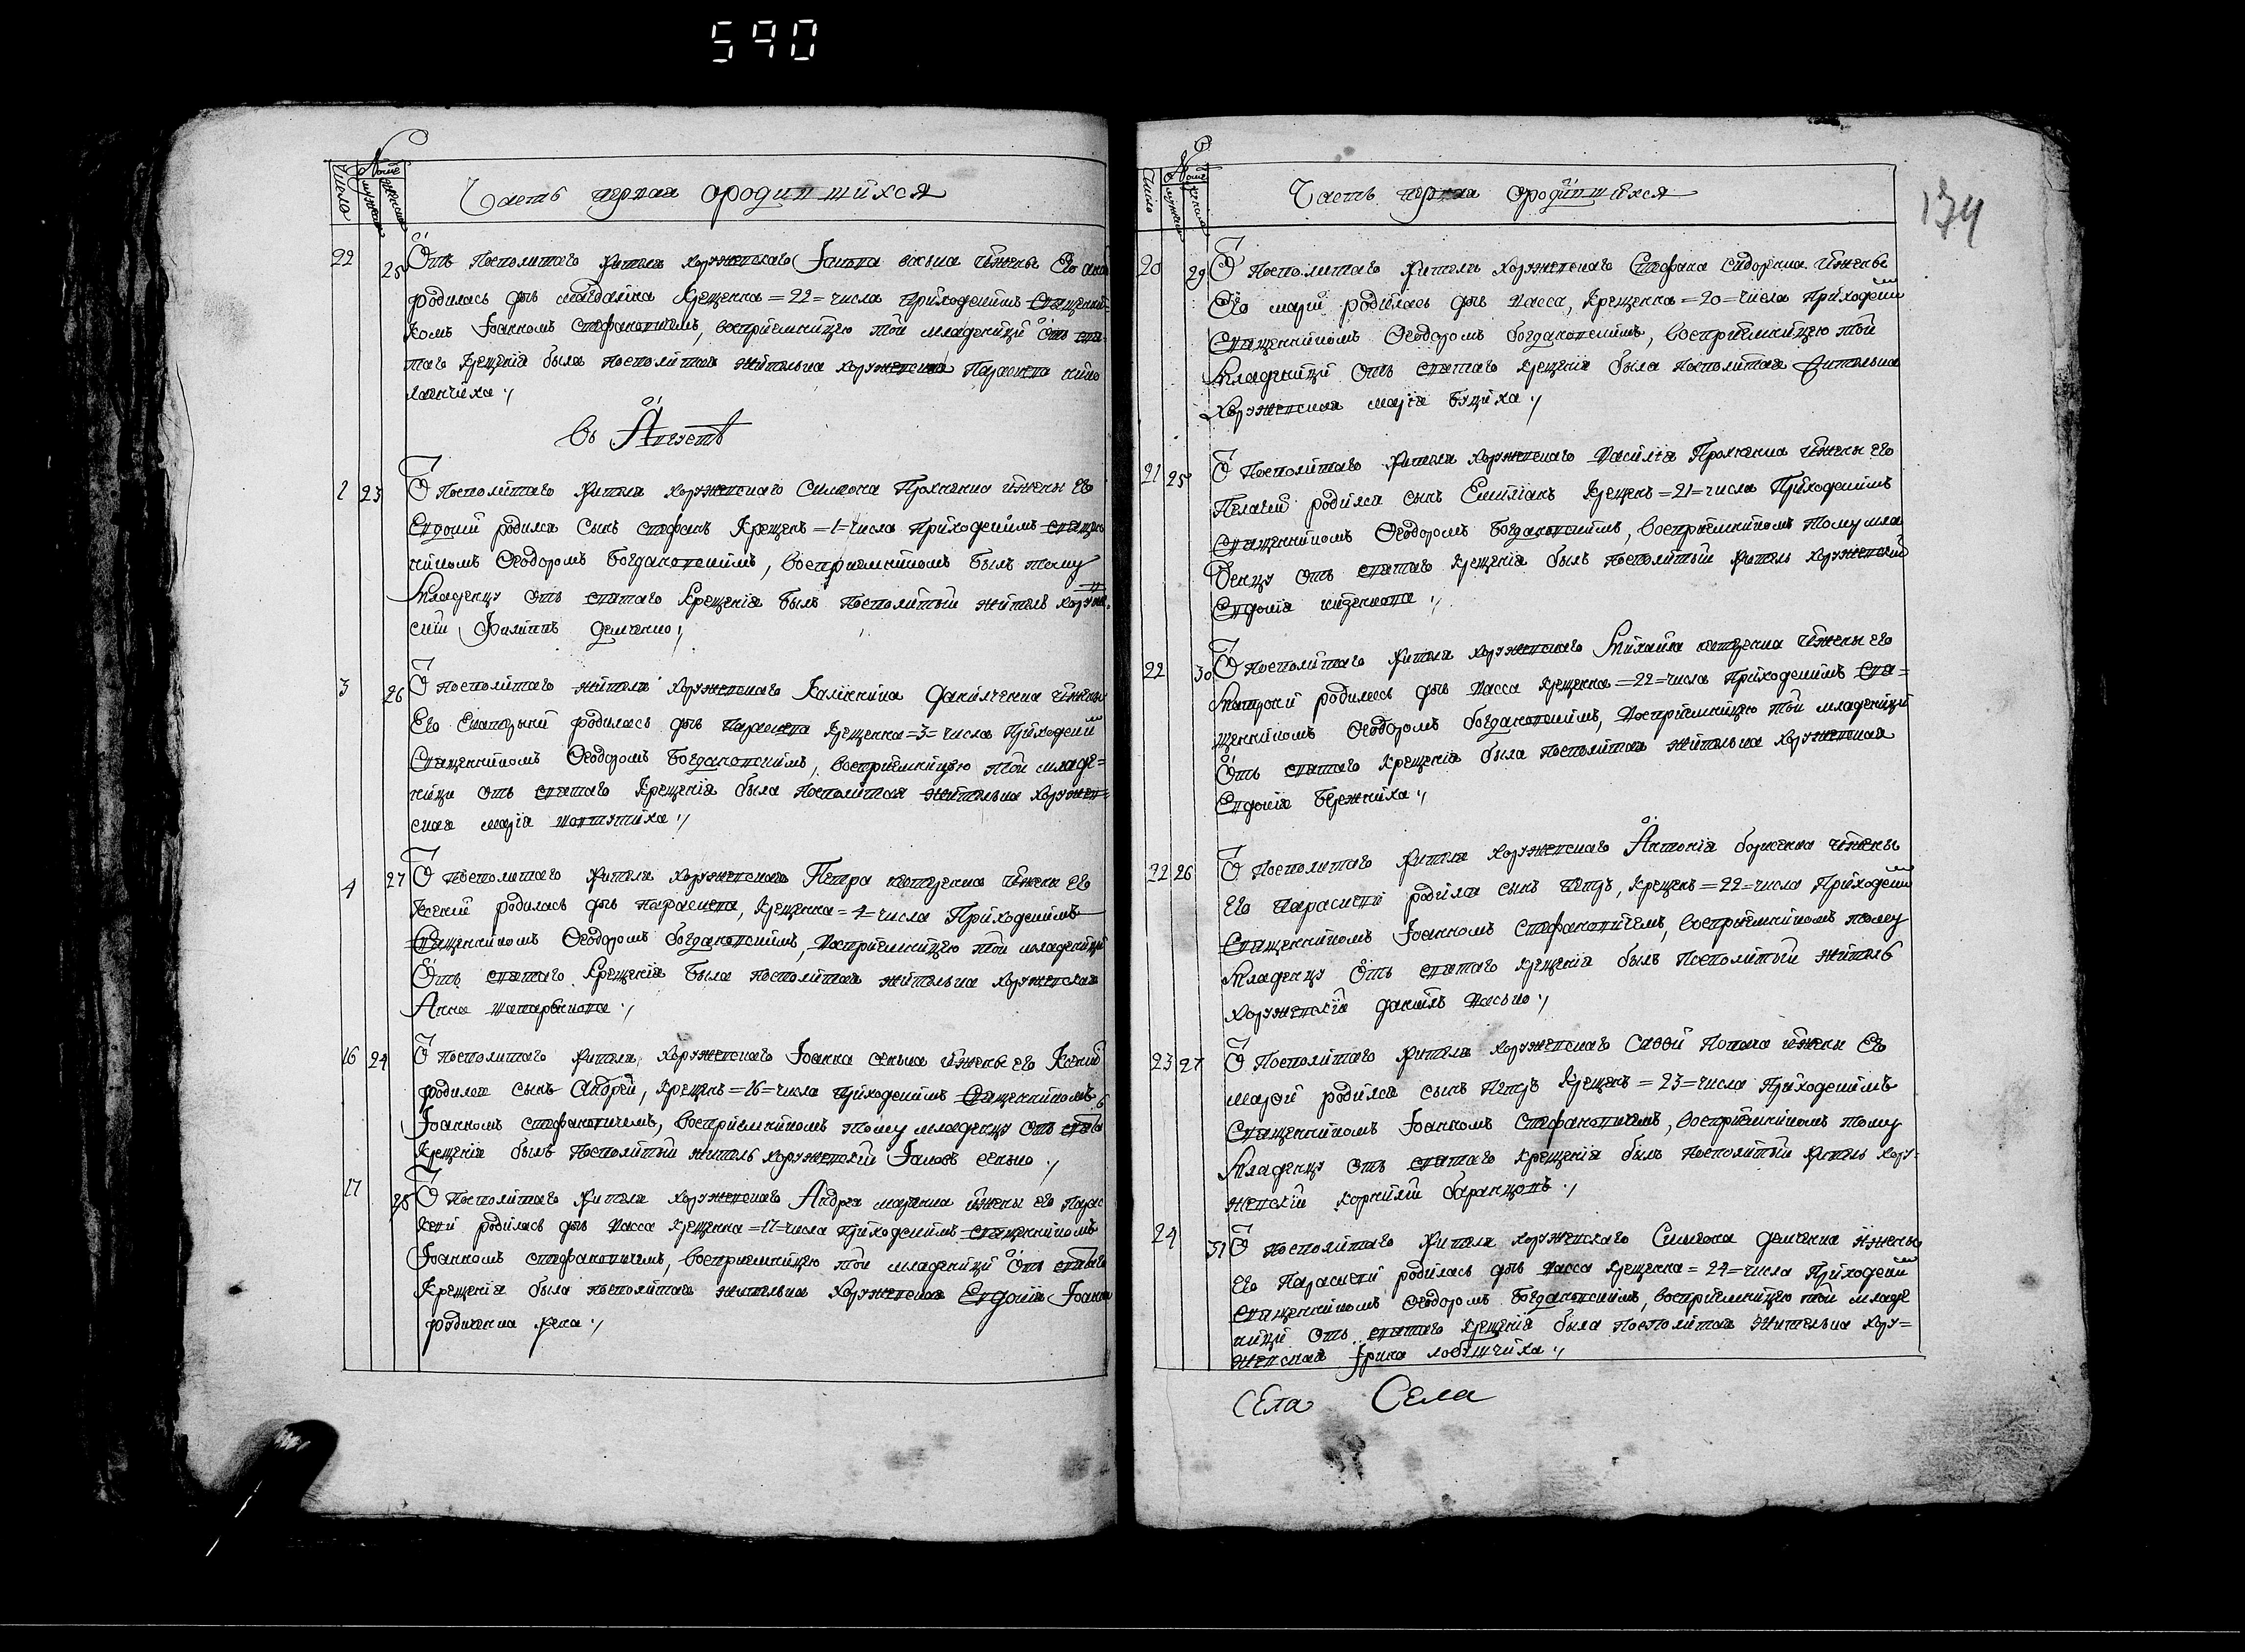 590
174
Числа
№
Часть первая ородившихся
22
25
Отъ посполитаго жителя хоружевскаго Іакова васька ижены Его анны
родилась дщь магдалина крещенна =22= числа приходскимъ священни-
комъ Іоанномъ Стефановичемъ, восприемницею той младеницы отъ свя-
таго крещенія была посполитая жителька хоружевская Параскева
Въ Августѣ
1 23
Ѿ посполитаго жителя хоружевскаго Симеона ижены его
Евдокии родился сынъ стефанъ крещенъ =1= числа приходскимъ священ
никомъ Ѳеодоромъ Богдановскимъ, восприемникомъ былъ тому
младенцу отъ святаго крещенія былъ посполитый житель хоружев
скій Филиппъ демченко
3
26
Ѿ посполитаго жителя хоружевскаго Калинника данилченка ижены
Его Екатерыны родилась дщь параскева крещенна =3= числа приходским
Священникомъ Ѳеодоромъ Богдановскимъ, восприемницею той младе=
ницы отъ святаго крещенія была посполитая жителька хоружев=
ская марія
4
27
Ѿ посполитаго жителя хоружевскаго Петра ижены его
Ксении родилась дщь параскева, крещенна =4= числа Приходскимъ
Священникомъ Ѳеодоромъ богдановскимъ, восприемницею той младеницы
Отъ святаго крещенія была посполитая жителька хоружевская
Анна
16 24
Ѿ посполитаго жителя хоружевскаго Іоанна сенька ижены его Ксении
родился сынъ Андрей, крещенъ =16= числа приходскимъ Священникомъ
Іоанномъ стефановичемъ, восприемникомъ тому младенцу отъ святаго
крещенія былъ посполитый житель хоружевскій Іаковъ сенько
17
28
Ѿ посполитаго жителя хоружевскаго Андрея марченка ижены его Парас
кевы родилась дщь васса крещенна =17= числа приходскимъ священникомъ
Іоанномъ стефановичемъ, восприемницею той младеницы отъ святаго
крещенія была посполитая жителька хоружевская Евдокія Іоанна
родченка жена
Число
№
Часть первая ородившихся
20
29
Ѿ посполитаго жителя хоружевскаго Стефана сидоренка ижены
Его марии родилась дщь васса, крещенна =20= числа приходским
священникомъ Ѳеодоромъ богдановскимъ, восприемницею той
младеницы отъ святаго крещенія была посполитая жителька
хоружевская марія Буциха
21 25
Ѿ посполитаго жителя хоружевскаго василія ижены его
Пелагии родился сынъ Емиліанъ крещенъ =21= числа приходскимъ
священникомъ Ѳеодоромъ Богдановскимъ, восприемникомъ тому мла
денцу отъ святаго крещенія былъ посполитый житель хоружевскій
Евдокія
22
30
Ѿ посполитаго жителя хоружевскаго Михаила ижены его
Матроны родилась дщь васса крещенна =22= числа приходскимъ свя=
щенникомъ Ѳеодоромъ богдановскимъ, восприемницею той младеницы
Отъ святаго крещенія была посполитая жителька хоружевская
Евдокія Бережниха
22 26
Ѿ посполитаго жителя хоружевскаго Антонія борженка ижены
Его параскевы родился сынъ Петръ, крещенъ =22= числа приходским
священникомъ Іоанномъ Стефановичемъ, восприемникомъ тому
младенцу отъ святаго крещенія былъ посполитый житель
хоружевскій даниилъ васько
23 27
Ѿ посполитаго жителя хоружевскаго Савы ижены Его
марии родился сынъ Петръ крещенъ =23= числа приходскимъ
священникомъ Іоанномъ стефановичемъ, восприемникомъ тому
младенцу отъ святаго крещенія былъ посполитый житель хору-
жевскій корнилій баранцовъ
24
31
Ѿ посполитаго жителя хоружевскаго Симеона демченка ижены
Его Параскевы родилась дщь васса крещенна =24= числа приходским
священникомъ Ѳеодоромъ Богдановскимъ, восприемницею той младе
ницы отъ святаго крещенія была посполитая жителька хору=
жевская Ірина
Села Села